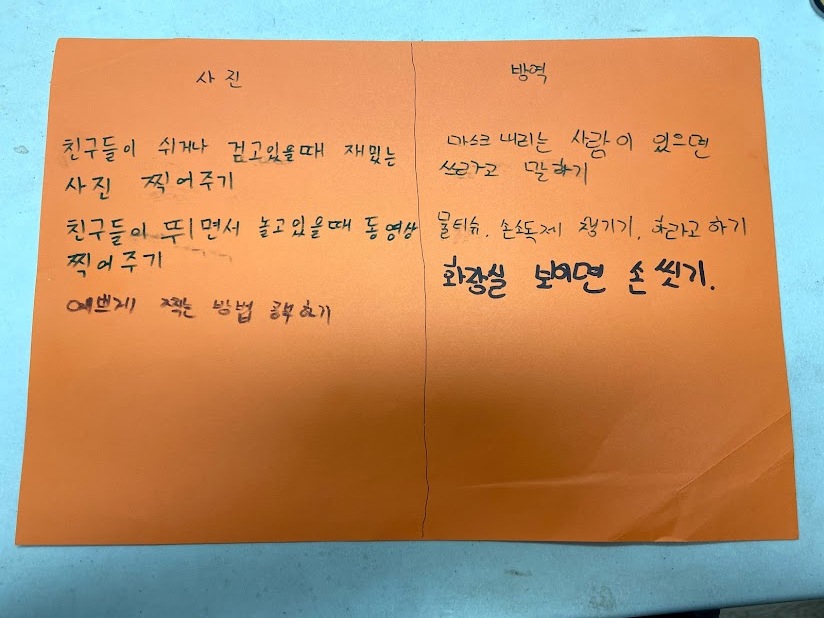 사진
친구들이 쉬거나 걷고있을때 재밌는
사진 찍어주기
친구들이 뛰면서 놀고있을때 동영상
찍어주기
예쁘게 찍는 방법 공부하기
방역
마스크 내리는 사람이 있으면
쓰라고 말하기
물티슈, 손소독제 챙기기, 하라고 하기
화장실 보이면 손 씻기.